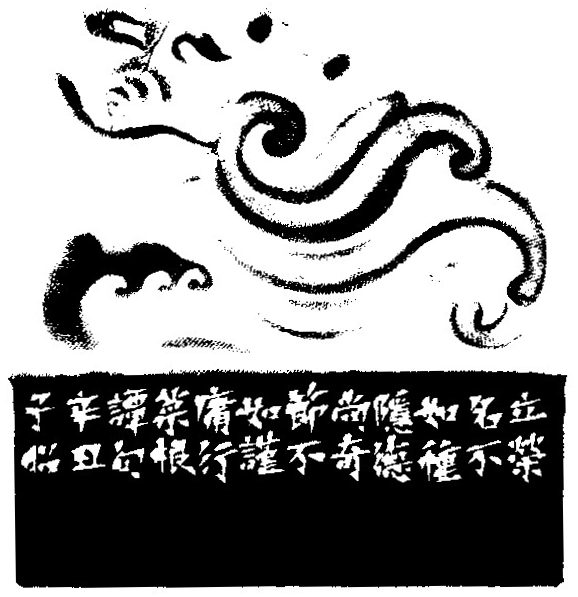 立榮
名不
如種
隱德
尚奇
節不
如謹
庸行
菜根
譚句
辛丑
子怡